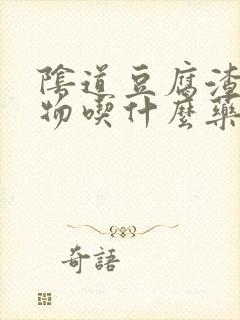 陰道豆腐渣
物喫什麼藥
奇語